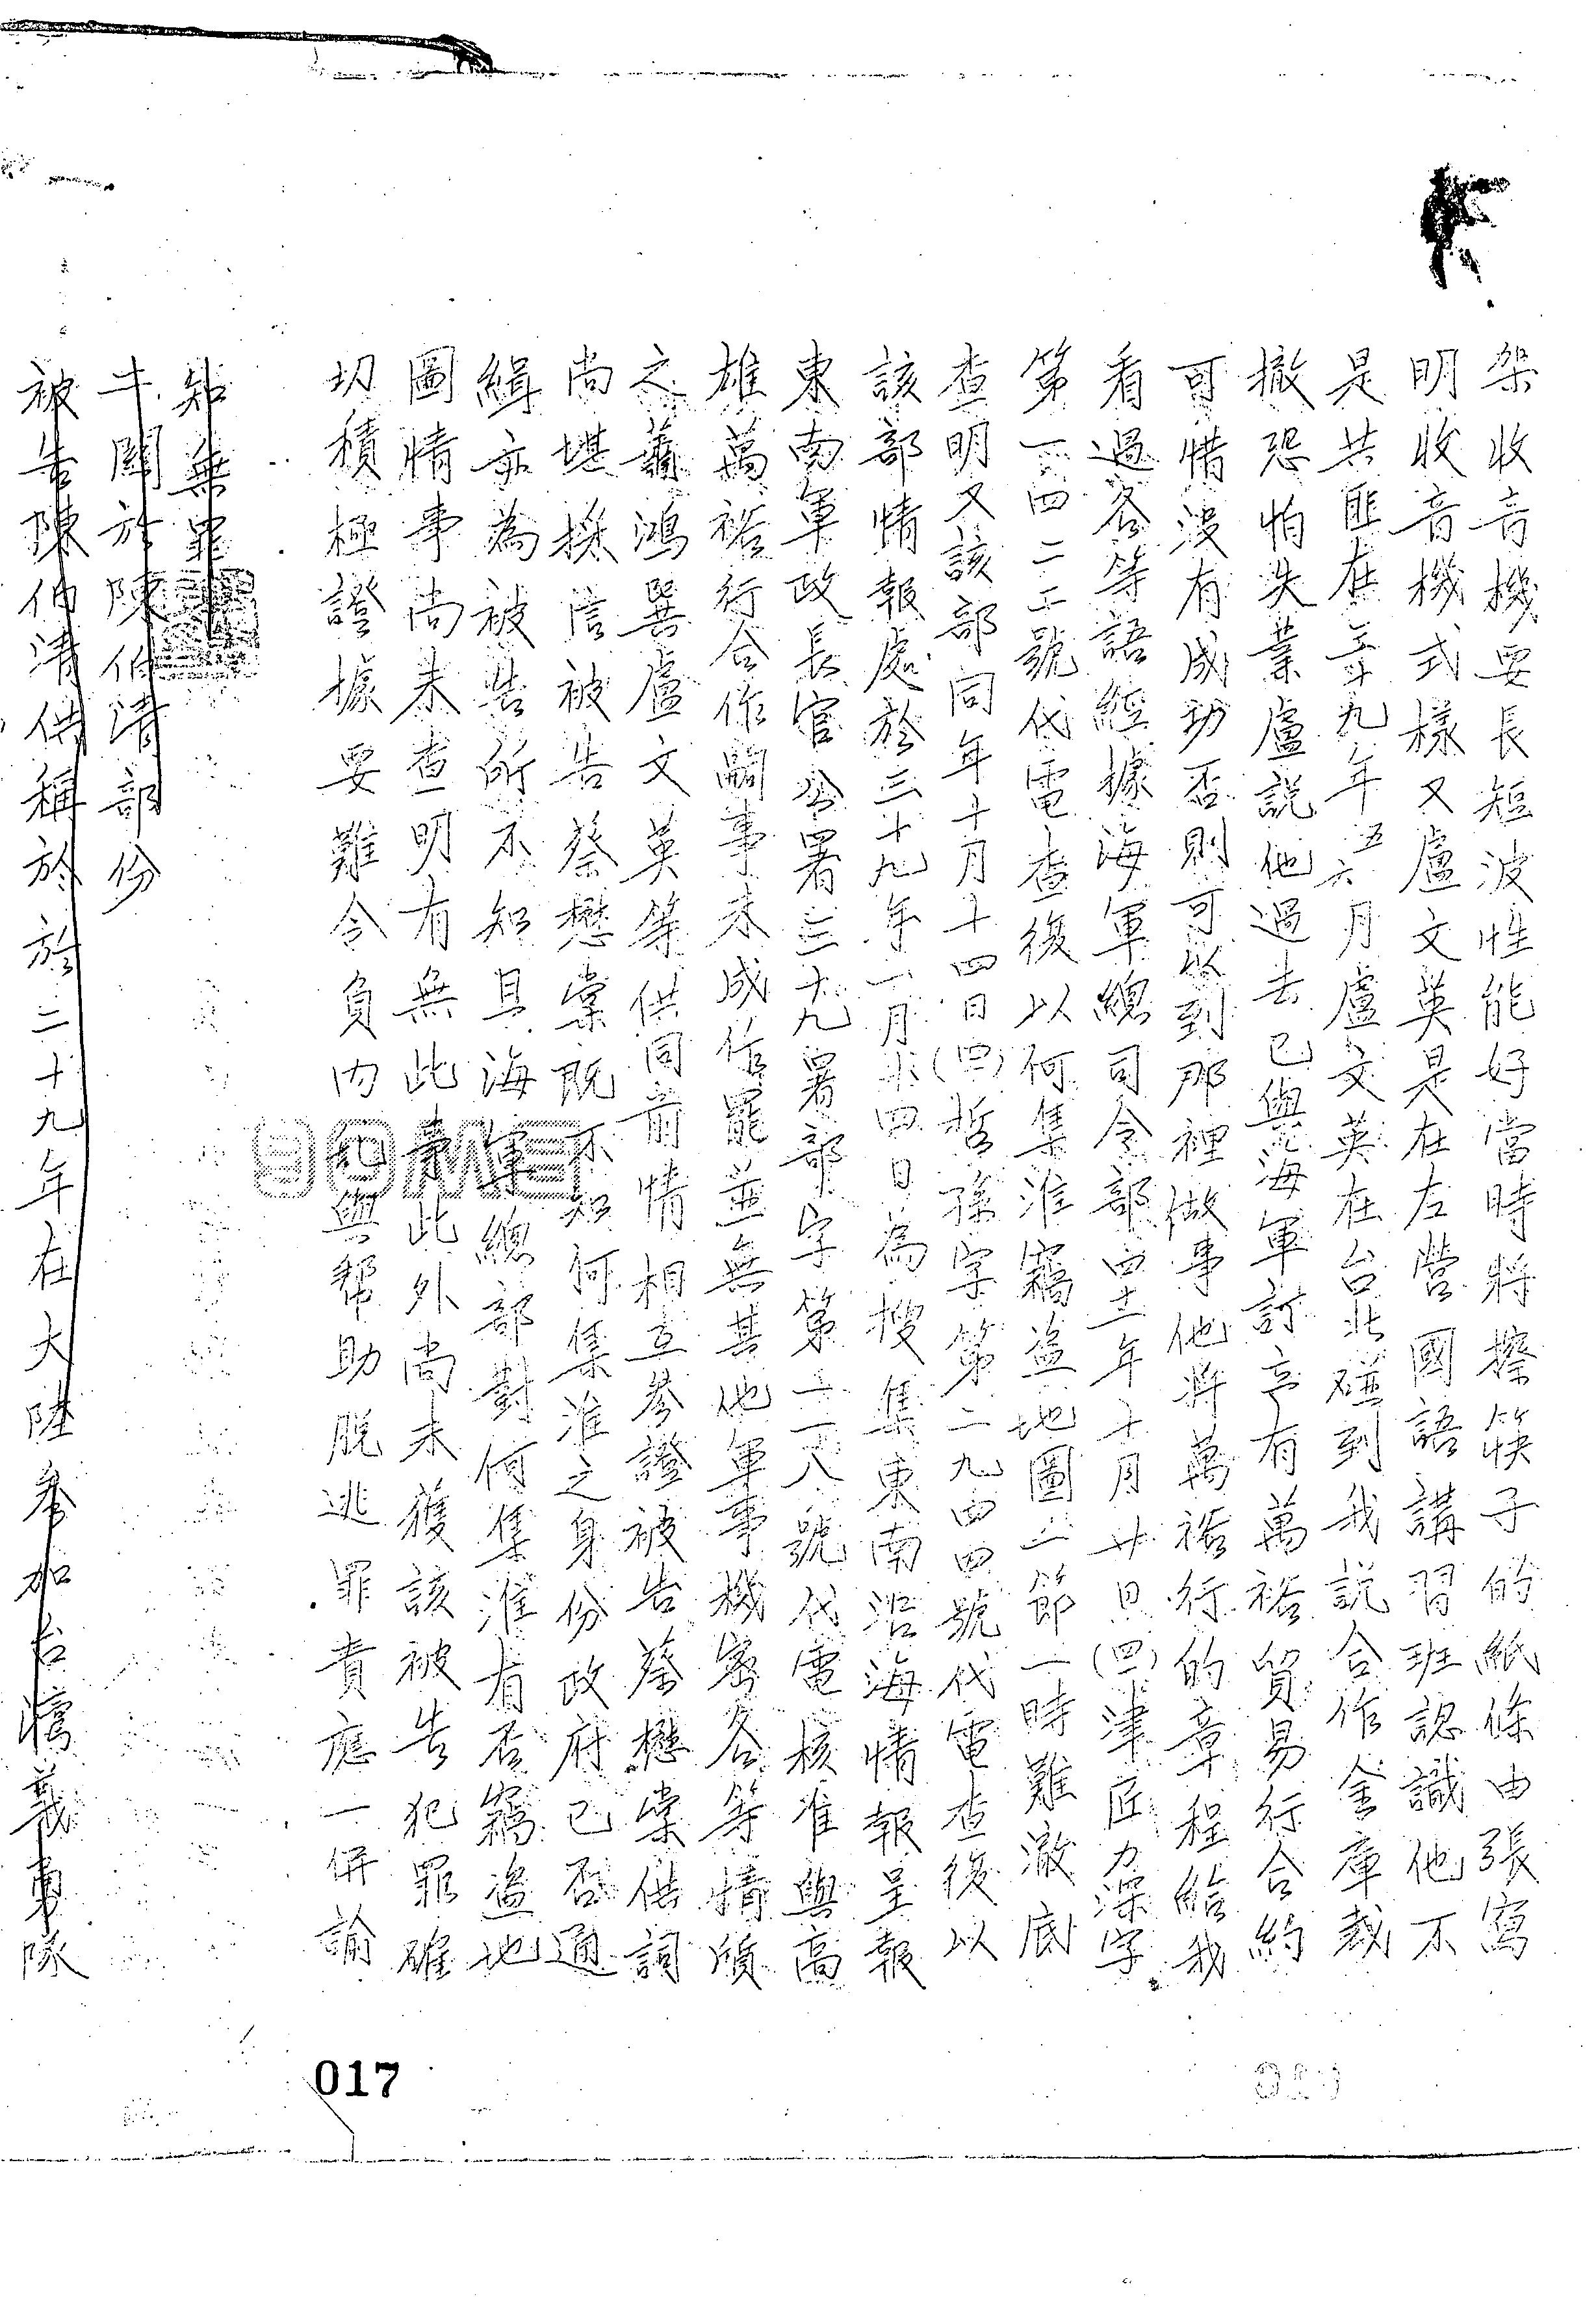 架收音機要長短波性能好當時將擦筷子的紙條由張寫
明收音機式樣又盧文英是在左營國語講習班認識他不
是共匪在三十九年五六月盧文英在台北碰到我說合作金庫裁
撤恐怕失業盧說他過去已與海軍訂立有萬裕貿易行合約
可惜沒有成功否則可以到那裡做事他將萬裕行的章程給我
看過各等語經據海軍總司令部四十二年十月廿日(四二)津匠力深字
第一一四二二號代電查復以何集淮竊盜地圖一節一時難澈底
查明又該部同年十月十四日(四二)哲孫字第二九四四號代電查復以
該部情報處於三十九年一月廿四日為搜集東南沿海情報呈報
東南軍政長官公署三十九署部字第二一八號代電核准與高
雄萬裕行合作嗣事未成作罷並無其他軍事機密各等情質
之蕭鴻巽盧文英等供同前情相互參證被告蔡懋棠供詞
尚堪採信被告蔡懋棠既不知何集淮之身份政府已否通
緝亦為被告所不知且海軍總部對何集淮有否竊盜地
圖情事尚未查明有無此事此外尚未獲該被告犯罪確
切積極證據要難令負內亂與幫助脫逃罪責應一併諭
知無罪
牛關於陳伯清部份
被告陳伯清供稱於於二十九年在大陸參加台灣義勇隊
017